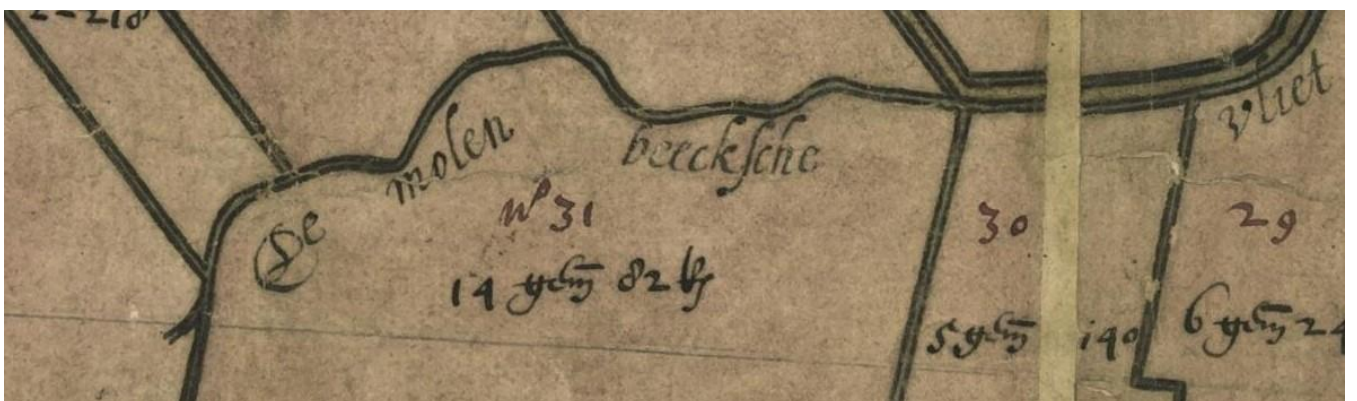 2-218
De molen beecksche vliet
No 31
14 gem̄ 82 R
30
5 gem̄ 140
29
6 gem̄ 24